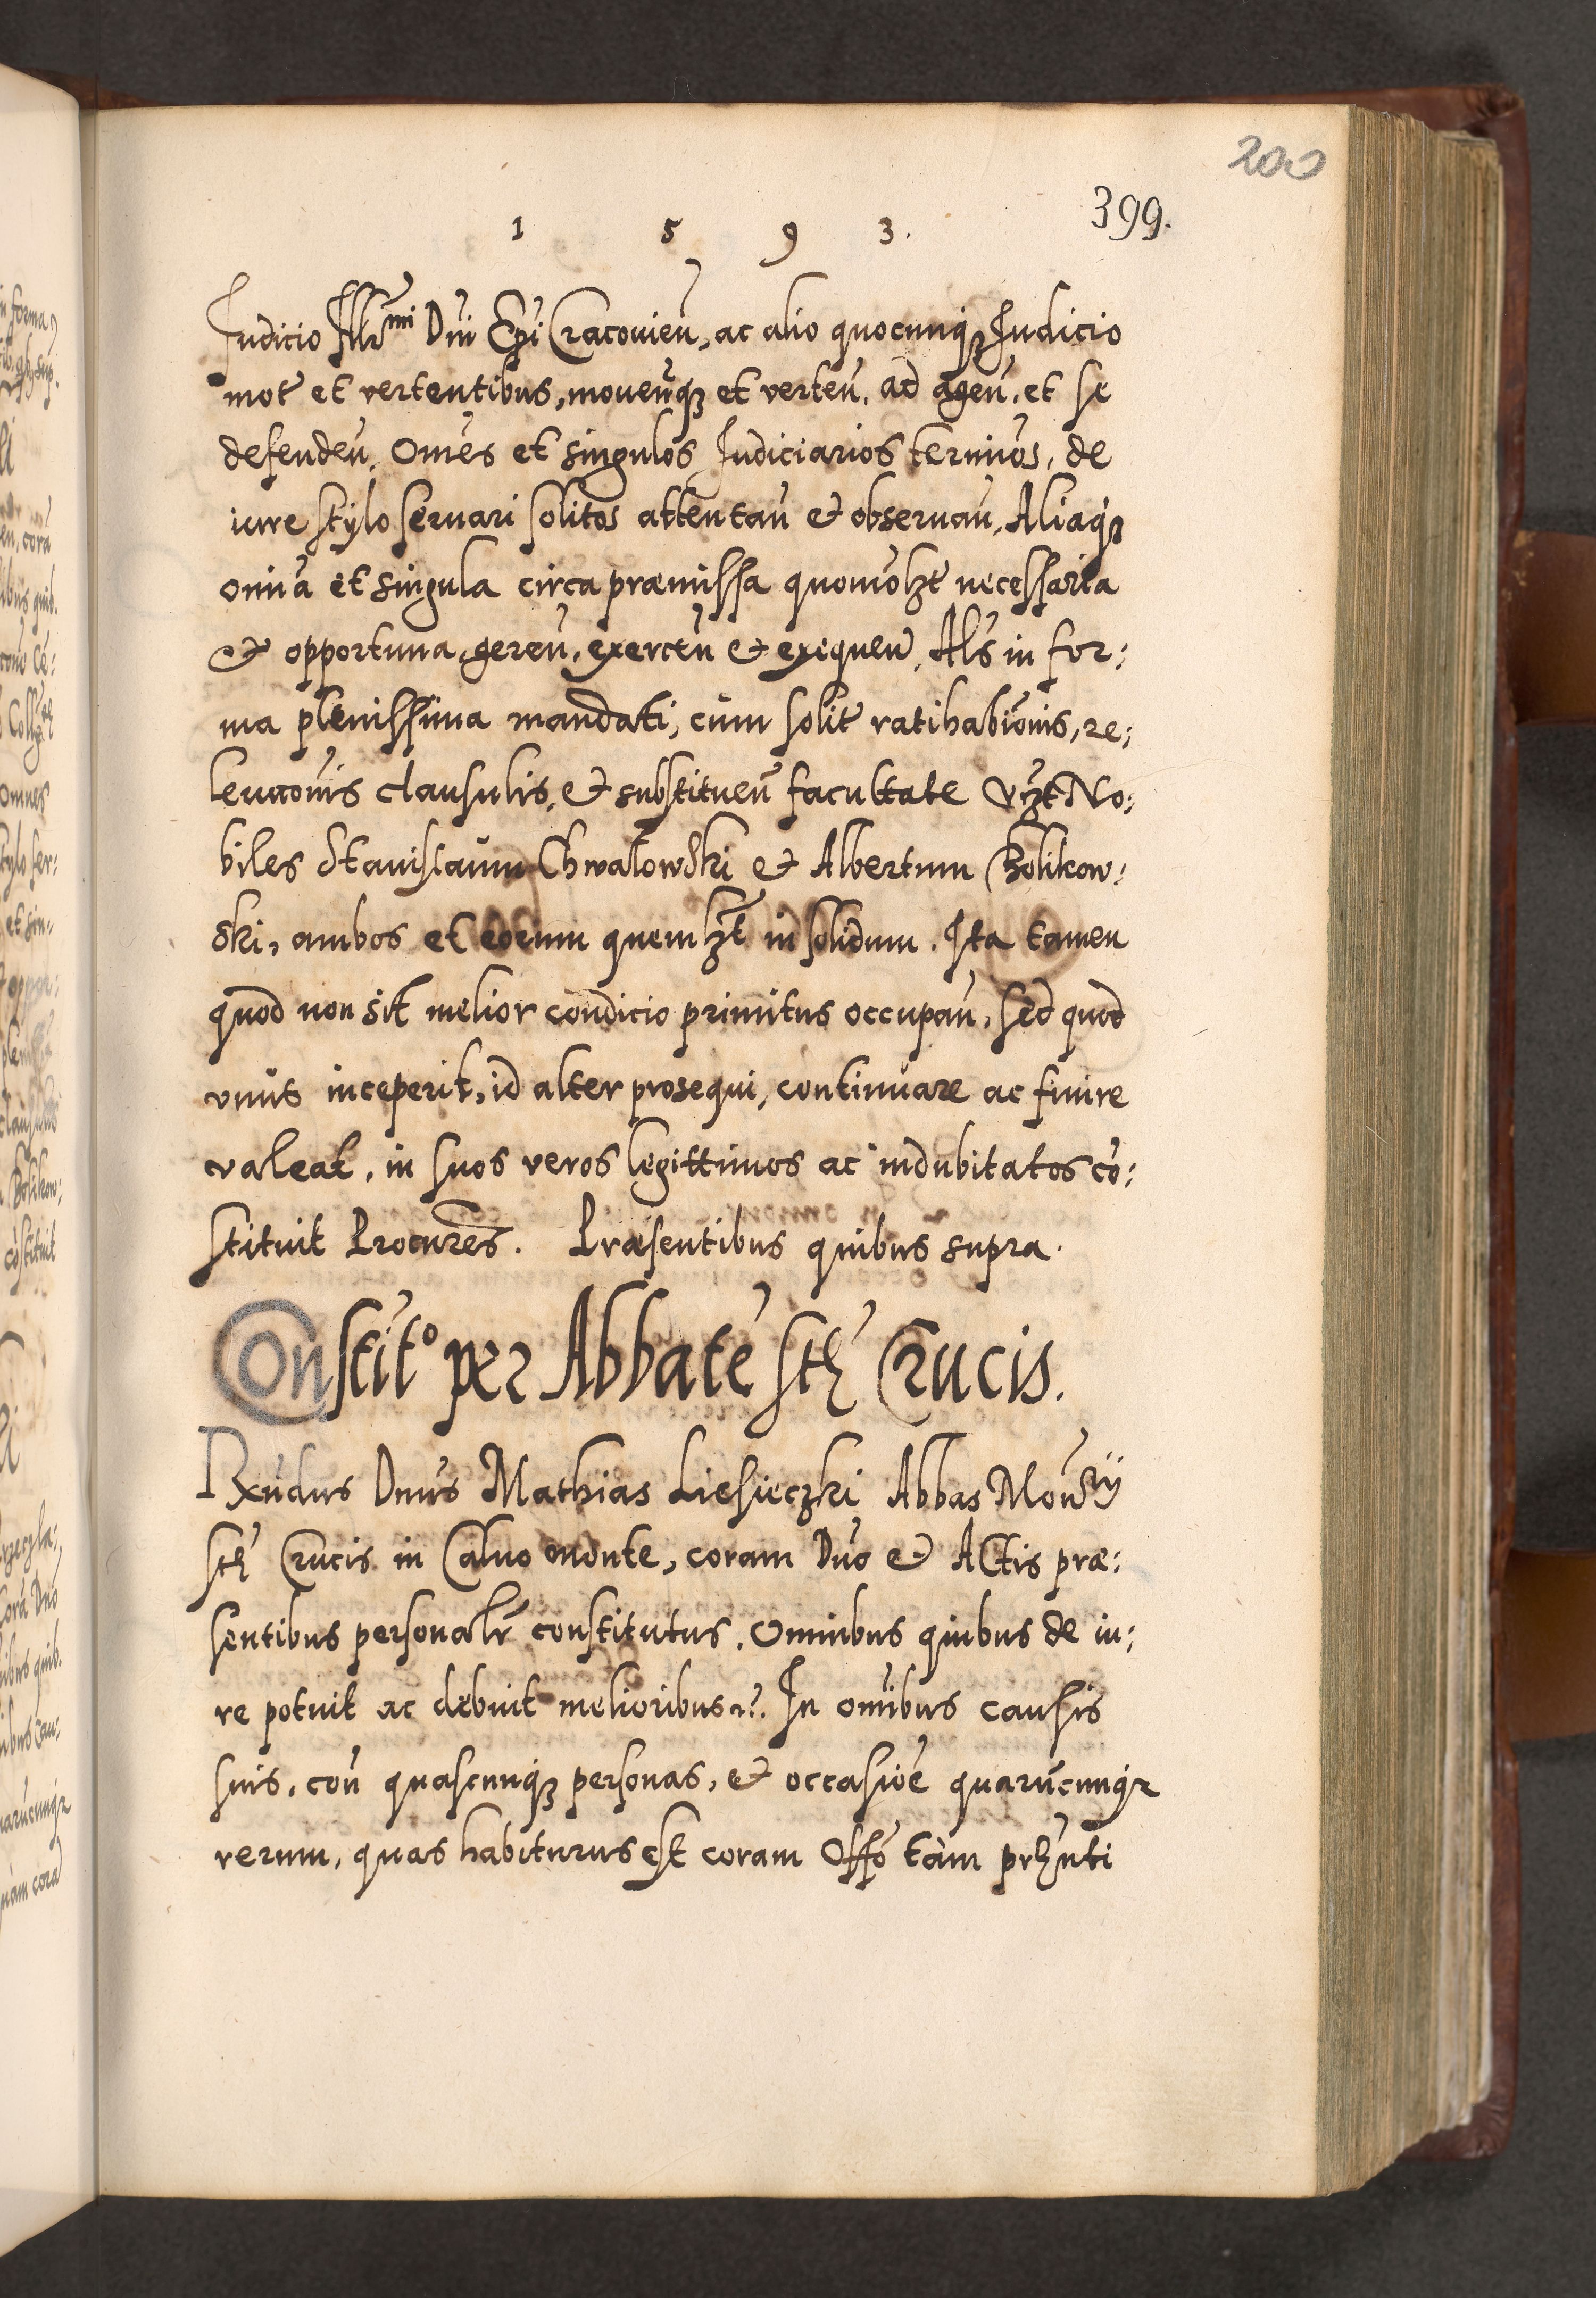 200
1 5 9 3.
399.
Judicio Illr̃mi Dni Epi Cracouien̄, ac alio quocunq; Judicio
mot̃ et vertentibus, mouen̄q; et verten̄, ad agen̄, et se
defenden̄, Om̄es et singulos Judiciarios termi̅os, de
iure stylo seruari solitos attentan̄ et obseruan̄, Aliaq;
omi̅a et singula circa præmissa quomo̅lz̃t necessaria
et opportuna, geren̄, exercen̄ et exequen̄, Als̃ in for:
ma plenissima mandati, cum solit̃ ratihabi̅onis, re:
leuac̅onis clausulis, et substituen̄ facultate Vz̃t No:
biles Stanislaum Chwalowski et Albertum Bolikow:
ski, ambos et eorum quemlz̃t in solidum. Ita tamen
quod non sit melior condicio primitus occupan̄, sed quod
vnus inceperit, id alter prosequi, continuare ac finire
valeat, in suos veros legittimos ac indubitatos co̅:
stituit Procur̃es. Præsentibus quibus supra.
Constit̅o per Abbate̅ Stæ̅ Crucis.
Rxn̄dus Dnus Mathias Liesieczki Abbas Mon̄rij
Stæ̅ Crucis in Caluo monte, coram Dno et Actis præ:
sentibus personalr̃ constitutus. Omnibus quibus de iu:
re potuit ac debuit melioribus &c. In om̅ibus causis
suis, con̄ quascunq; personas, et occasio̅e quaru̅cunq;
rerum, quas habiturus est coram Offo̅ tàm prh̃nti